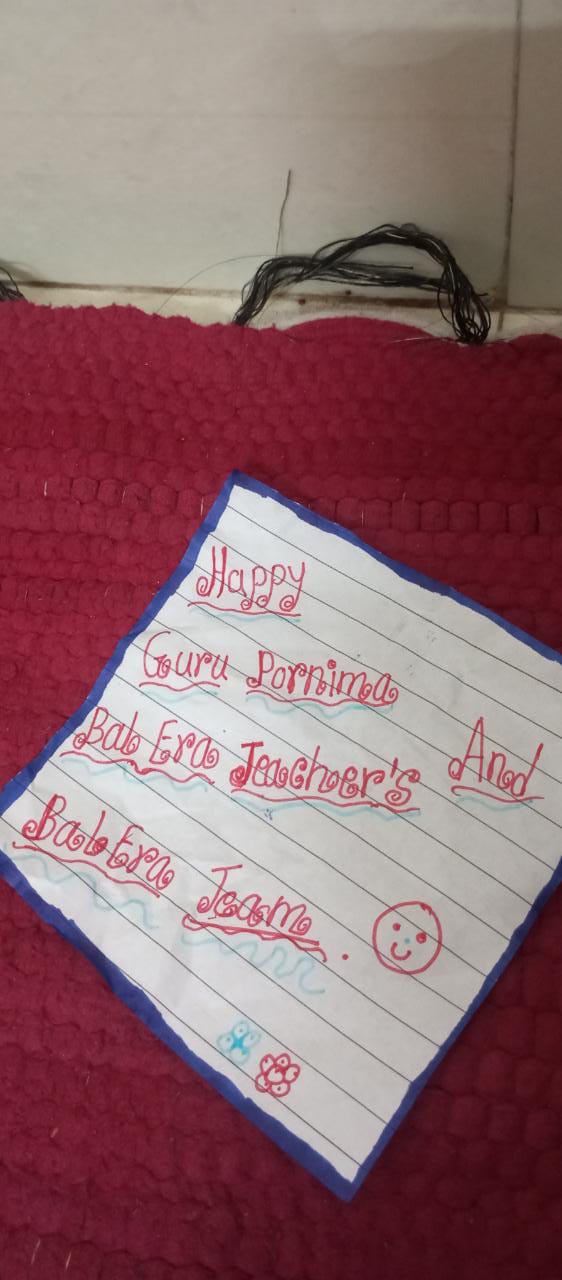 Happy
Guru Pornima
Bal Era Teacher's And
Bal Era Team.